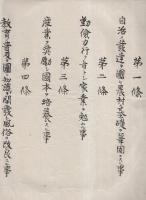 第一條
自治ノ發達ヲ圖リ農村ノ基礎ヲ鞏固ニスル事
第二條
勤儉力行ヲ旨トシ家業ヲ勉ムル事
第三條
産業ヲ奬勵シ國本ヲ培養スル事
第四條
教育ノ普及ヲ圖リ知識ヲ開發シ風俗ヲ改良スル事